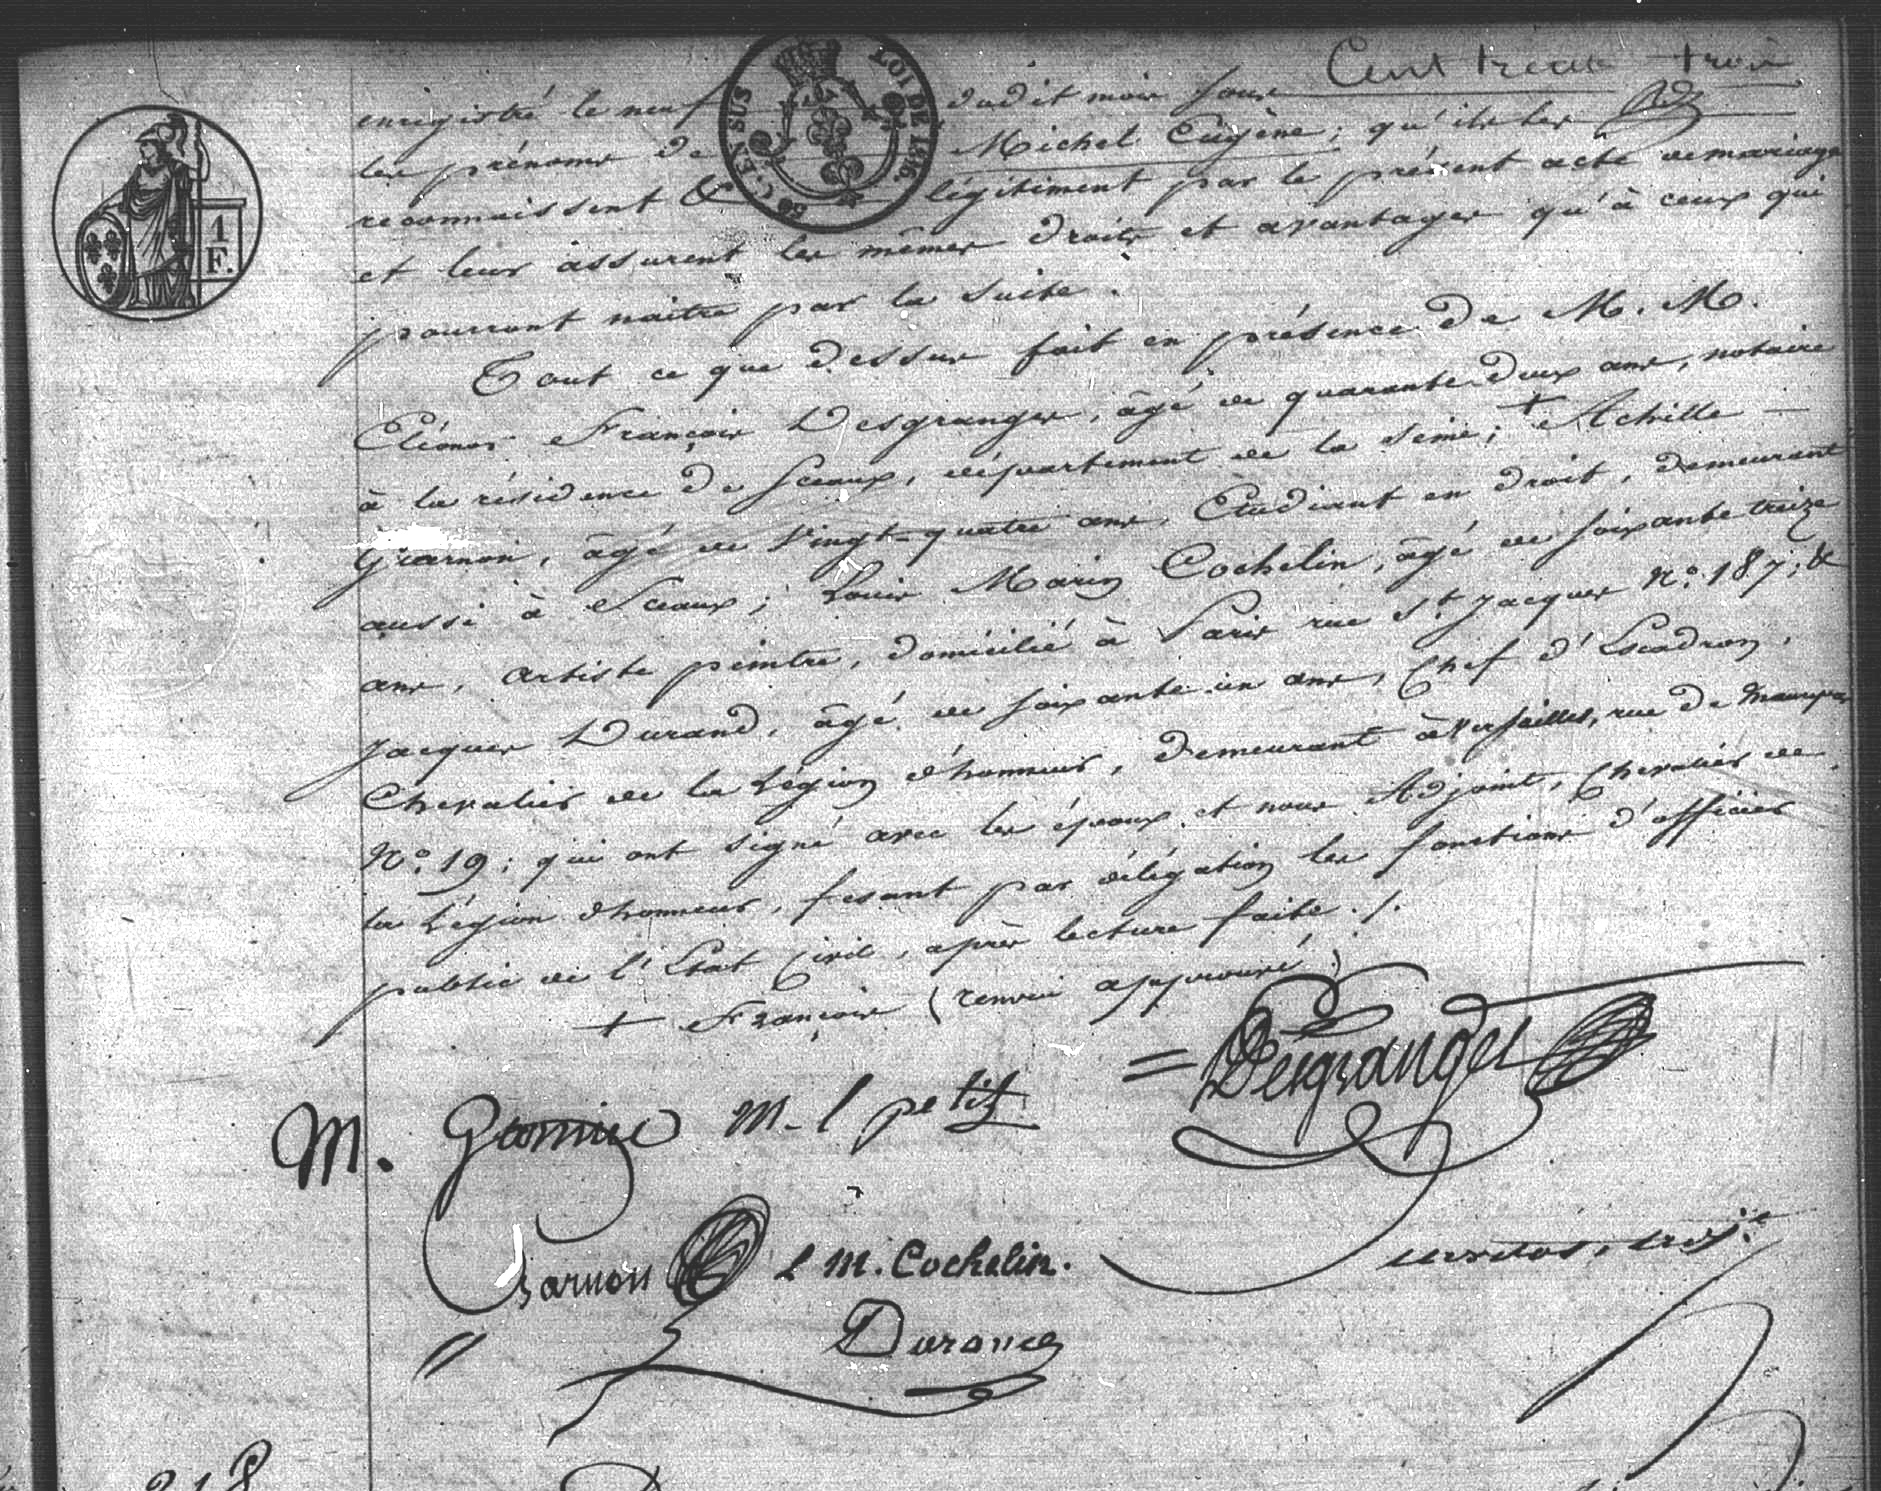 Cent trente trois
enregistré le neuf dudit mois sous
les prénoms de Michel Eugène; qu'ils les
reconnaissent & légitiment par le présent acte de mariage
et leur assurent les mêmes droits et avantages qu'à ceux qui
pourront naitre par la suite.
Tout ce que dessus fait en présence de M. M.
François Desgranges, âgé de quarante deux ans, notaire
à la résidence de Sceaux, département de la Seine; + Achille —
Garnon, âgé de vingt-quatre ans, Etudiant en droit, demeurant
aussi à Sceaux; Louis Marin Cochelin, âgé de soixante treize
ans, artiste peintre, domicilié à Paris rue St. Jacques No. 187; &
Jacques Durand, âgé de soixante un ans, Chef d'Escadron,
Chevalier de la Légion d'honneur, demeurant à Versailles, rue de Maurepas
No. 19; qui ont signé avec les époux et nous Adjoint, Chevalier de
la Légion d'honneur, fesant par délégation les fonctions d'officier
public de l'Etat Civil, après lecture faite ./.
+ François (renvoi approuvé)
= Desgranges
M. Garnier m. l petit
Garnon L M. Cochelin.
Durand
218
LOI DE 1816.
50 C. EN SUS
1
F.